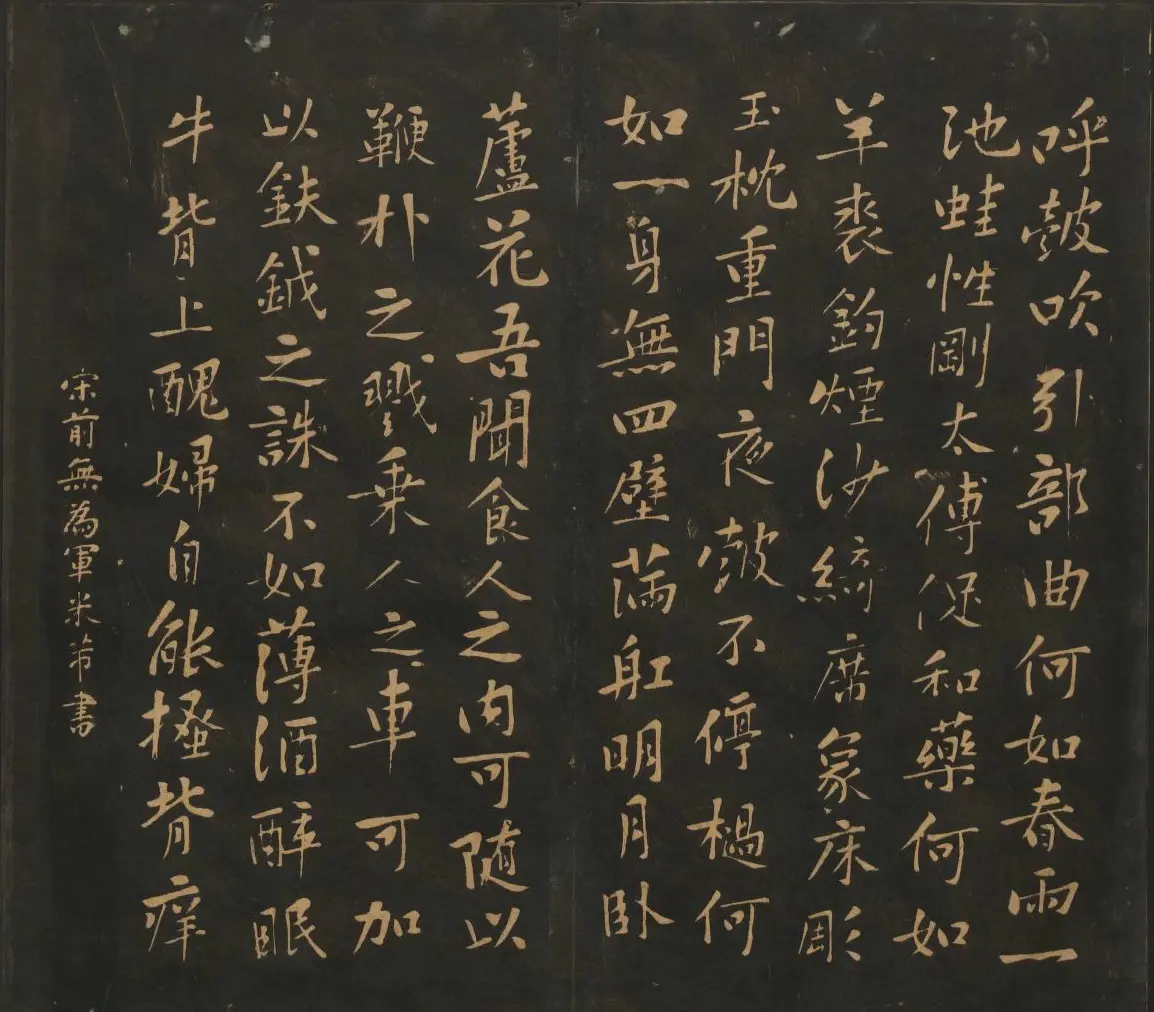 呼鼓吹引部曲何如春雨一
池蛙性剛太傅促和藥何如
羊裘釣煙沙綺席象床彫
玉枕重門夜鼓不停撾何
如一身無四壁滿船明月臥
蘆花吾聞食人之肉可隨以
鞭朴之戮乗人之車可加
以鈇鉞之誅不如薄酒醉眠
牛背上醜婦自能搔背痒
宋前無為軍米芾書